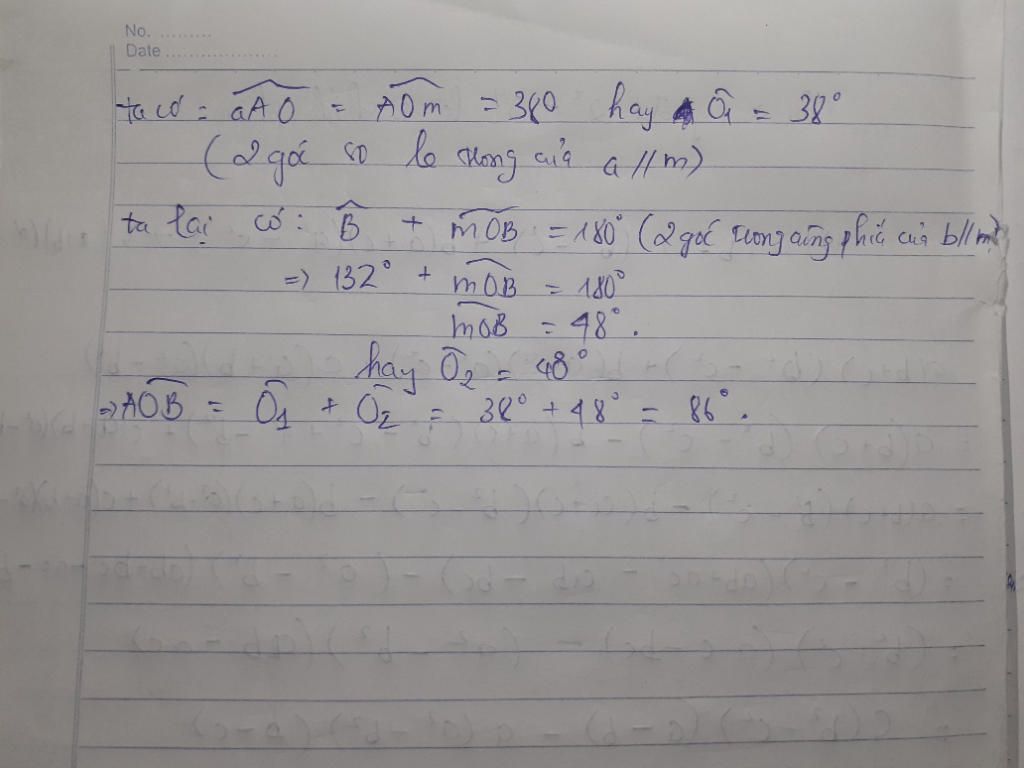 No. .........
Date ...................
ta có : aAO = AOm = 380 hay Ô1 = 38°
(2 góc so le trong của a // m)
ta lại có : B + mOB = 180° (2 góc trong cùng phía của b//m)
=> 132° + mOB = 180°
mOB = 48°.
hay Ô2 = 48°
=> AOB = Ô1 + Ô2 = 38° + 48° = 86°.